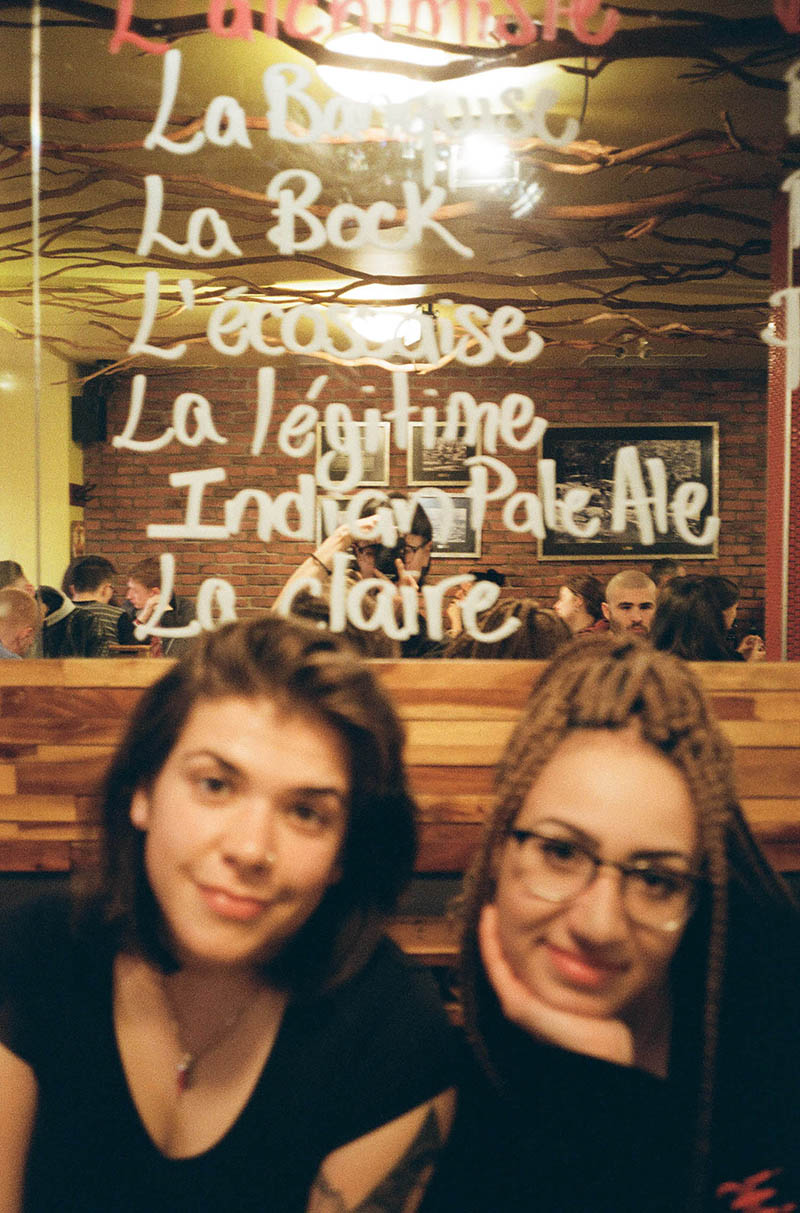 L'alchimiste
La Banquise
La Bock
L'écossaise
La légitime
Indian Pale Ale
La claire